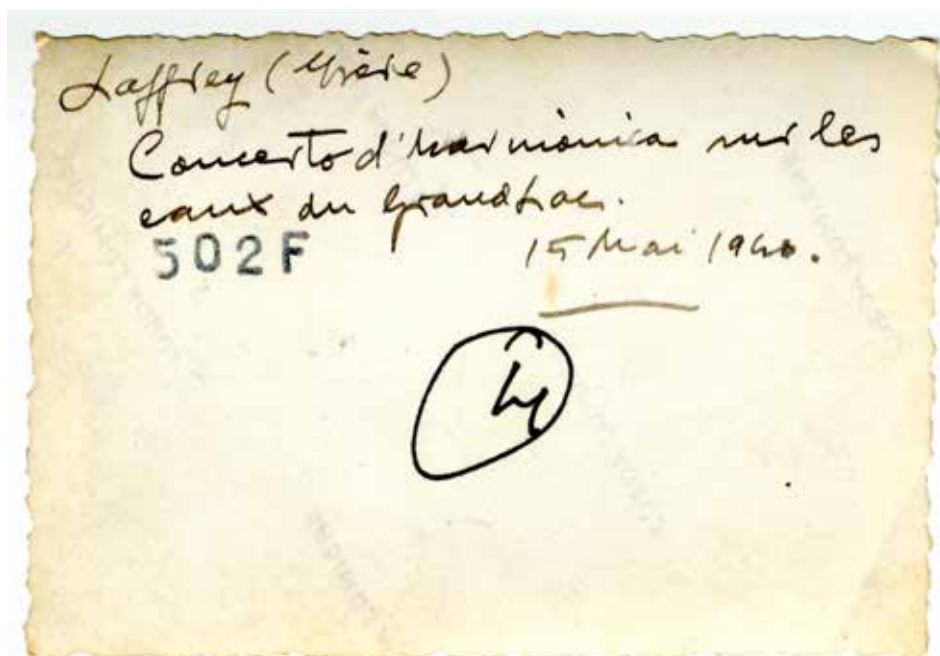 Laffrey (Isère)
Concerto d'harmonica sur les
eaux du Grand Lac.
502F
15 Mai 1940.